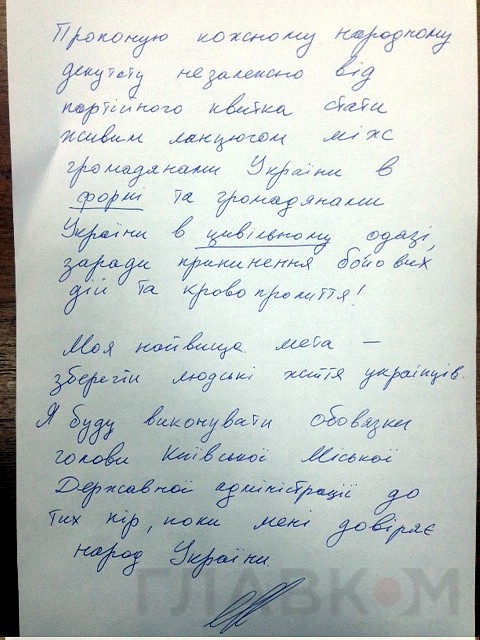 Пропоную кожному народному
депутату незалежно від
партійного квитка стати
живим ланцюгом між
громадянами України в
формі та громадянами
України в цивільному одазі,
заради припинення бойових
дій та кровопролиття!
Моя найвища мета –
зберегти людські життя українців.
Я буду виконувати обовязки
голови Київської Міської
Державної адміністрації до
тих пір, поки мені довіряє
народ України.
ГЛАВКОМ